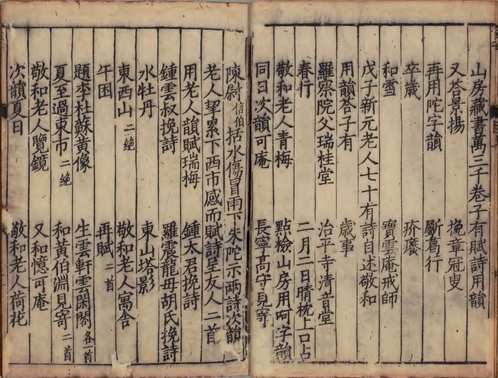 山房藏書萬三千卷子有賦詩用韻
又答景揚　挽章冠叟
再用陀字韻　行
卒歲　疥癢
和雪　寶雲庵戒師
戊子新元老人七十有詩自述敬和
用韻答子有　歲事
羅察院父瑞桂堂　治平寺清音堂
春行　二月二日晴枕上口占
敬和老人青梅　點檢山房用呵字韻
同日次韻可庵　長寧高守見寄
陳尉括水傷冒雨下朱陀示兩詩次韻
老人挈累下西市感而賦詩呈友人二首
用老人韻賦瑞梅　鍾太君挽詩
鍾雲叔挽詩　羅震龍母胡氏挽詩
水牡丹　東山塔影
東西山二絕　敬和老人寓舍
午困　再賦二首
題李杜蘇黃像　生雲軒雲閣各一首
夏至過東市二絕　和黃伯淵見寄二首
敬和老人覽鏡　又和憶可庵
次韻夏日　敬和老人荷花